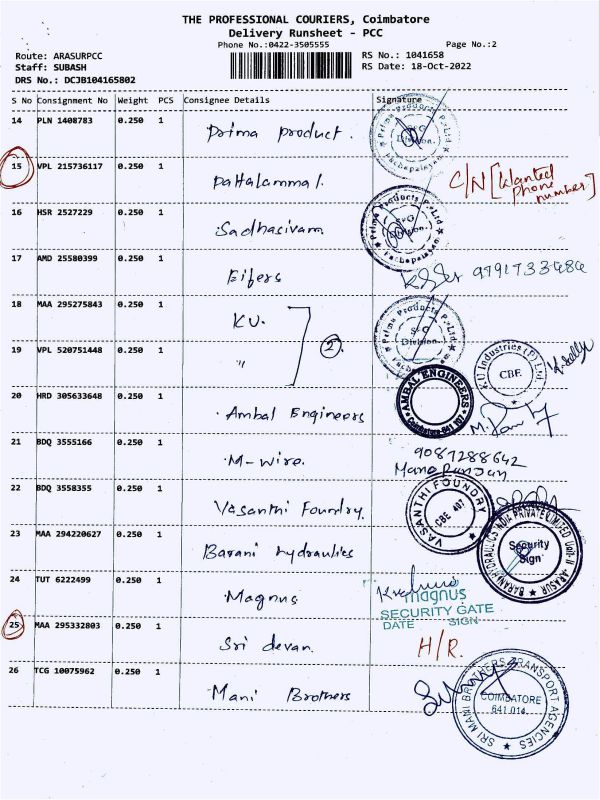 THE PROFESSIONAL COURIERS, Coimbatore
Delivery Runsheet - PCC
Phone No.:0422-3505555 Page No.:2
Route: ARASURPCC RS No.: 1041658
Staff: SUBASH RS Date: 18-Oct-2022
DRS No.: DCJB104165802
S No Consignment No Weight PCS Consignee Details Signature
14 PLN 1408783 0.250 1 Prima product. Prima Products P.Ltd S-G Division. Pachapalayam
15 VPL 215736117 0.250 1 pattalammal. C/N [Wanted phone number]
16 HSR 2527229 0.250 1 Sadhasivam Prima Products P.Ltd S-G Division. Pachapalayam
17 AMD 25580399 0.250 1 Eifers
18 MAA 295275843 0.250 1 KU. Prima Products P.Ltd S-G Division.
19 VPL 520751448 0.250 1 " 2. KU Industries (P) Ltd CBE
20 HRD 305633648 0.250 1 Ambal Engineers AMBAL ENGINEERS Coimbatore 641 107
21 BDQ 3555166 0.250 1 M-wire. 9087288642
Manoranjan
22 BDQ 3558355 0.250 1 Vasanthi Foundry. VASANTHI FOUNDRY CBE 407
23 MAA 294220627 0.250 1 Barani hydraulics BARANI HYDRAULICS INDIA PRIVATE LIMITED Unit-II ARASUR Security Sign
24 TUT 6222499 0.250 1 Magnus magnus
SECURITY GATE
DATE SIGN
25 MAA 295332803 0.250 1 Sri devan. H/R.
26 TCG 10075962 0.250 1 Mani Brothers SRI MANI BROTHERS TRANSPORT AGENCIES COIMBATORE 641 014